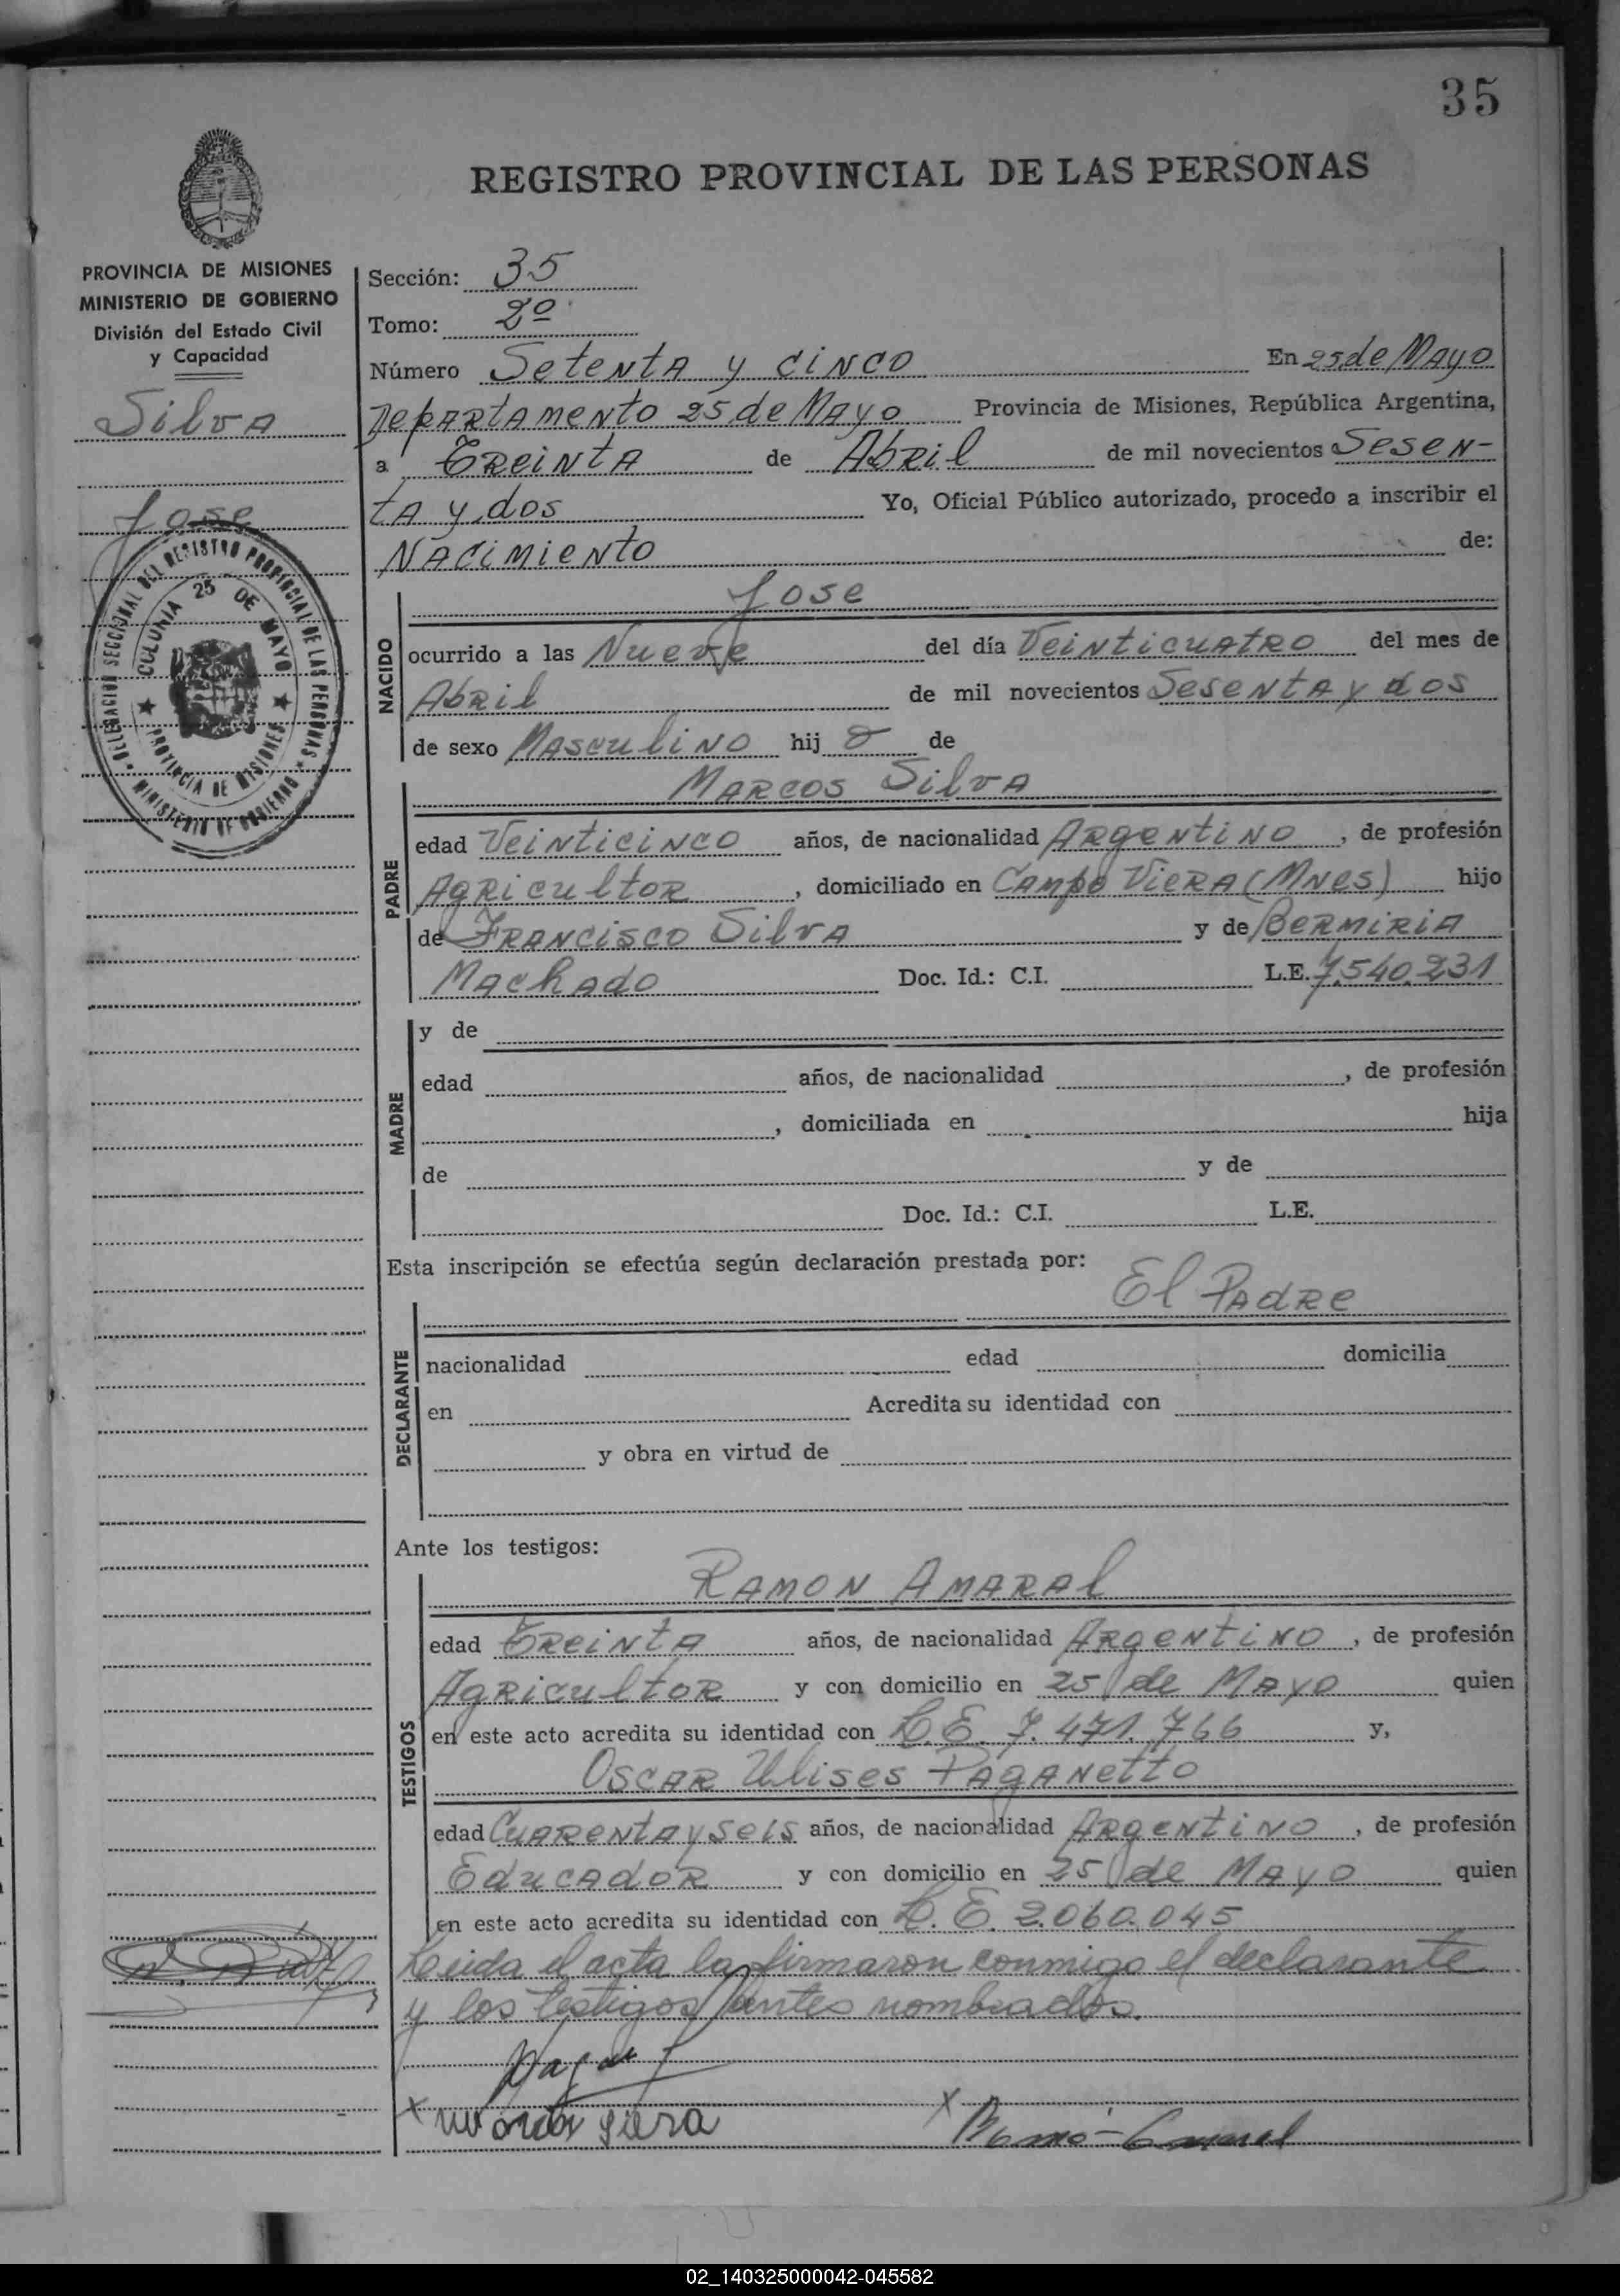 35
REGISTRO PROVINCIAL DE LAS PERSONAS
PROVINCIA DE MISIONES
MINISTERIO DE GOBIERNO
División del Estado Civil
y Capacidad
Silva
Jose
DELEGACION SECCIONAL DEL REGISTRO PROVINCIAL DE LAS PERSONAS
COLONIA 25 DE MAYO
PROVINCIA DE MISIONES
MINISTERIO DE GOBIERNO
Sección: 35
Tomo: 2º
Número Setenta y cinco En 25 de Mayo
Departamento 25 de Mayo Provincia de Misiones, República Argentina,
a Treinta de Abril de mil novecientos Sesen-
ta y dos Yo, Oficial Público autorizado, procedo a inscribir el
Nacimiento de:
NACIDO
Jose
ocurrido a las Nueve del día Veinticuatro del mes de
Abril de mil novecientos Sesenta y dos
de sexo Masculino hij o de
PADRE
Marcos Silva
edad Veinticinco años, de nacionalidad Argentino, de profesión
Agricultor, domiciliado en Campo Viera (Mnes) hijo
de Francisco Silva y de Bermiria
Machado Doc. Id.: C.I. L.E. 7.540.231
MADRE
y de
edad años, de nacionalidad , de profesión
, domiciliada en hija
de y de
Doc. Id.: C.I. L.E.
Esta inscripción se efectúa según declaración prestada por:
El Padre
DECLARANTE
nacionalidad edad domicilia
en Acredita su identidad con
y obra en virtud de
Ante los testigos:
TESTIGOS
Ramon Amaral
edad Treinta años, de nacionalidad Argentino, de profesión
Agricultor y con domicilio en 25 de Mayo quien
en este acto acredita su identidad con L.E. 7.471.766 y,
Oscar Ulises Paganetto
edad Cuarenta y seis años, de nacionalidad Argentino, de profesión
Educador y con domicilio en 25 de Mayo quien
en este acto acredita su identidad con L.E. 2.060.045
Leida el acta la firmaron conmigo el declarante
y los testigos antes nombrados.
x
x
02_140325000042-045582